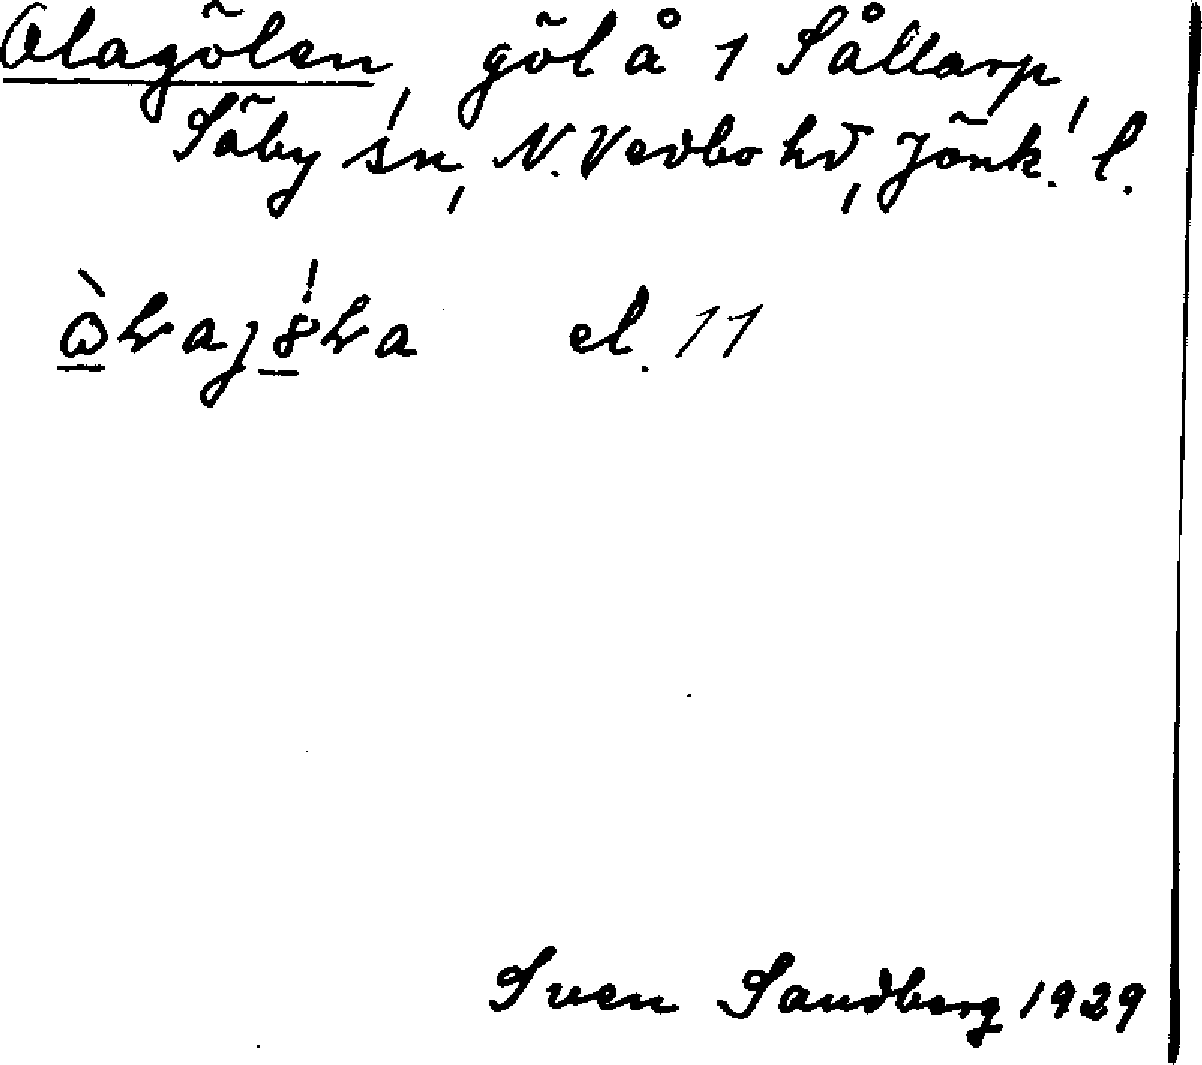 Olagölen, göl å 1 Sållarp,
Säby sn, N. Vedbo hd, Jönk. l.
el. 11
Sven Sandberg 1929